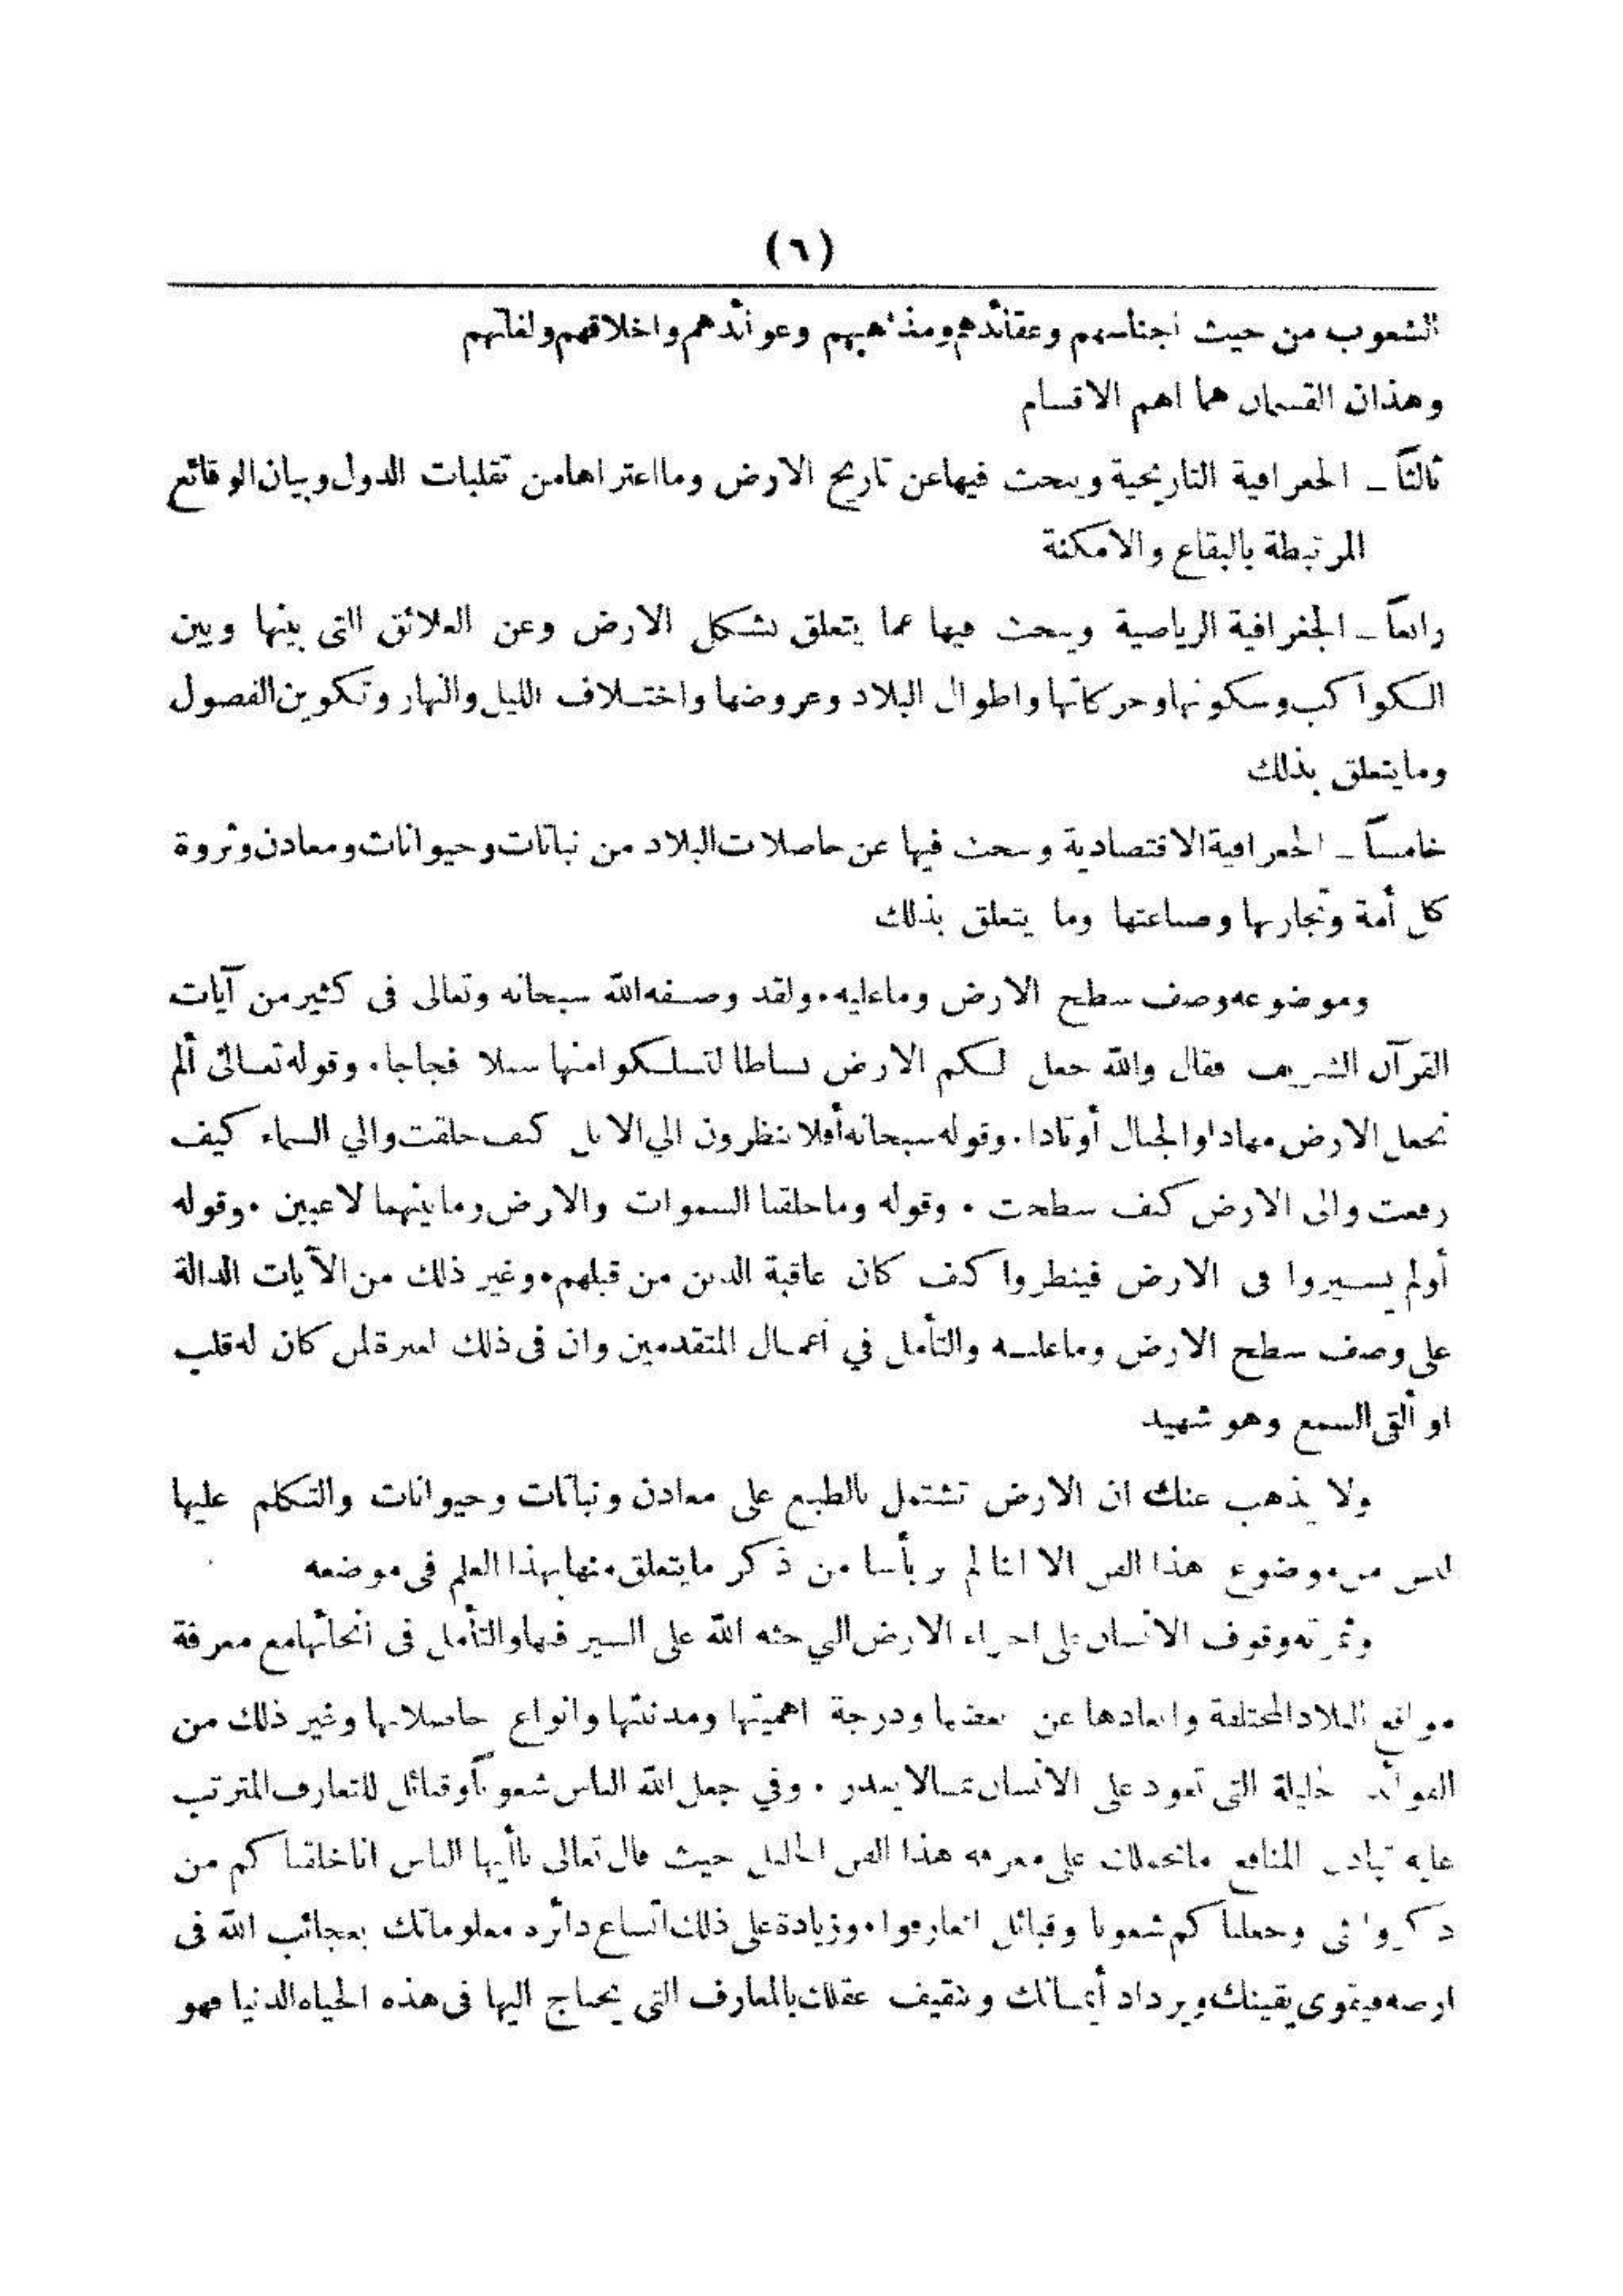 (٦)
الشعوب من حيث اجناسهم وعقائدهم ومذاهبهم وعوائدهم واخلاقهم ولغاتهم
وهذان القسمان هما اهم الاقسام
ثالثاً ــ الجغرافية التاريخية ويبحث فيها عن تاريخ الارض وما اعتراها من تقلبات الدول وبيان الوقائع
المرتبطة بالبقاع والامكنة
رابعاً ــ الجغرافية الرياضية ويبحث فيها عما يتعلق بشكل الارض وعن العلائق التى بينها وبين
الكواكب وسكونها وحركاتها واطوال البلاد وعروضها واختلاف الليل والنهار وتكوين الفصول
وما يتعلق بذلك
خامساً ــ الجغرافية الاقتصادية ويبحث فيها عن حاصلات البلاد من نباتات وحيوانات ومعادن وثروة
كل أمة وتجارتها وصناعتها وما يتعلق بذلك
وموضوعه وصف سطح الارض وما عليه ٠ ولقد وصفه الله سبحانه وتعالى فى كثير من آيات
القرآن الشريف فقال والله جعل لكم الارض بساطا لتسلكوا منها سبلا فجاجا ٠ وقوله تعالى ألم
نجعل الارض مهادا والجبال أوتادا ٠ وقوله سبحانه أفلا ينظرون الي الابل كيف خلقت والي السماء كيف
رفعت والى الارض كيف سطحت ٠ وقوله وما خلقنا السموات والارض وما بينهما لاعبين ٠ وقوله
أولم يسيروا فى الارض فينظروا كيف كان عاقبة الذين من قبلهم ٠ وغير ذلك من الآيات الدالة
على وصف سطح الارض وما عليه والتأمل في أعمال المتقدمين وان فى ذلك لعبرة لمن كان له قلب
او ألقى السمع وهو شهيد
ولا يذهب عنك ان الارض تشتمل بالطبع على معادن ونباتات وحيوانات والتكلم عليها
ليس من موضوع هذا الفن الا اننا لم نر بأسا من ذكر ما يتعلق منها بهذا العلم فى موضعه
وثمرته وقوف الانسان على اجزاء الارض التي حثه الله على السير فيها والتأمل فى أنحائها مع معرفة
مواقع البلاد المختلفة وابعادها عن بعضها ودرجة اهميتها ومدنيتها وانواع حاصلاتها وغير ذلك من
الفوائد الجليلة التى تعود على الانسان بما لا يقدر ٠ وفي جعل الله الناس شعوباً وقبائل للتعارف المترتب
عليه تبادل المنافع ما يحملك على معرفة هذا الفن الجليل حيث قال تعالى ياأيها الناس انا خلقناكم من
ذكر وانثى وجعلناكم شعوبا وقبائل لتعارفوا ٠ وزيادة على ذلك اتساع دائرة معلوماتك بعجائب الله فى
ارضه فيقوى يقينك ويزداد أيمانك وتثقيف عقلك بالمعارف التى يحتاج اليها فى هذه الحياه الدنيا فهو